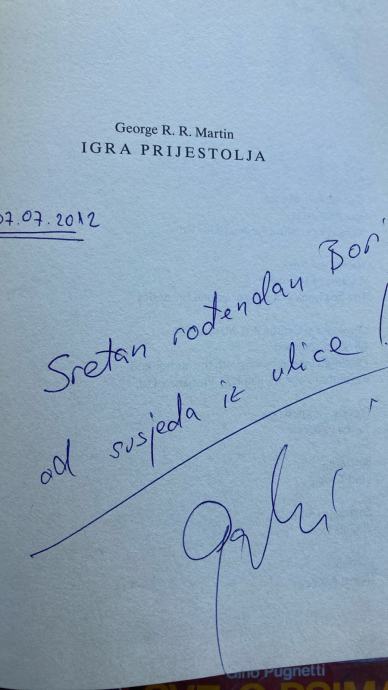 George R. R. Martin
IGRA PRIJESTOLJA
07.07.2012
Sretan rođendan
od susjeda iz ulice
Gino Pugnetti